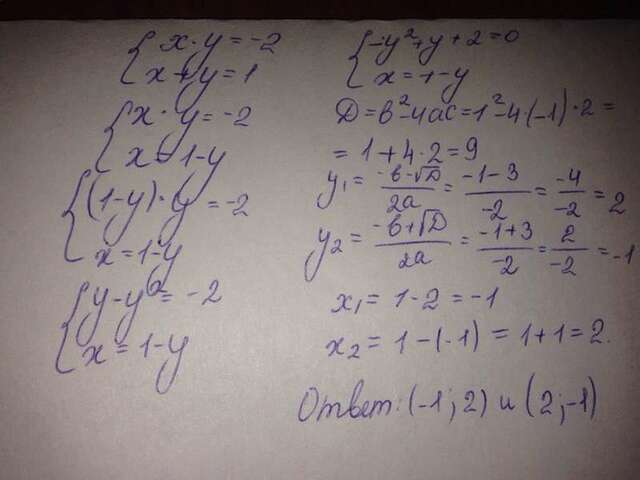 x·y=-2
x+y=1
x·y=-2
x=1-y
(1-y)·y=-2
x=1-y
y-y²=-2
x=1-y
-y²+y+2=0
x=1-y
Д=в²-4ac=1²-4(-1)·2=
=1+4·2=9
y₁=(-в-√Д)/2a=(-1-3)/-2=-4/-2=2
y₂=(-в+√Д)/2a=(-1+3)/-2=2/-2=-1
x₁=1-2=-1
x₂=1-(-1)=1+1=2.
Ответ:(-1;2) и (2;-1)